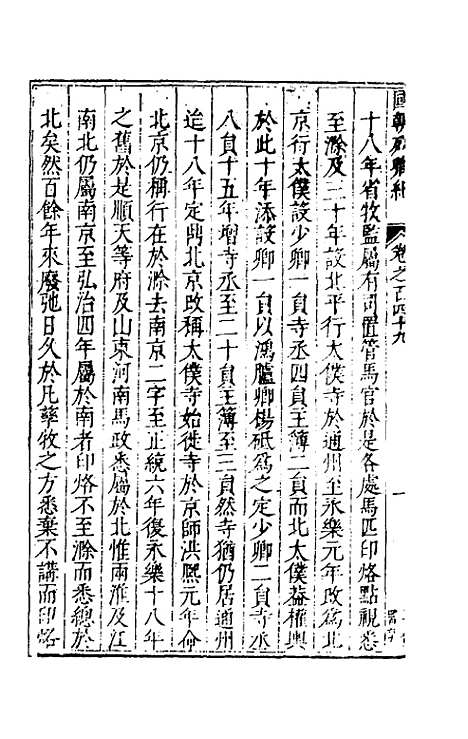 國朝列卿紀 卷之一百四十九 一
十八年省牧監屬有司置管馬官於是各處馬匹印烙點視悉
至滁及三十年設北平行太僕寺於通州至永樂元年改為北
京行太僕設少卿一員寺丞四員主簿二員而北太僕益權輿
於此十年添設卿一員以鴻臚卿楊砥為之定少卿二員寺丞
八員十五年增寺丞至二十員主簿至三員然寺猶仍居通州
迨十八年定鼎北京改稱太僕寺始徙寺於京師洪熙元年命
北京仍稱行在於滁去南京二字至正統六年復永樂十八年
之舊於是順天等府及山東河南馬政悉屬於北惟兩淮及江
南北仍屬南京至弘治四年屬於南者印烙不至滁而悉總於
北矣然百餘年來廢弛日久於凡孳牧之方悉棄不講而印烙